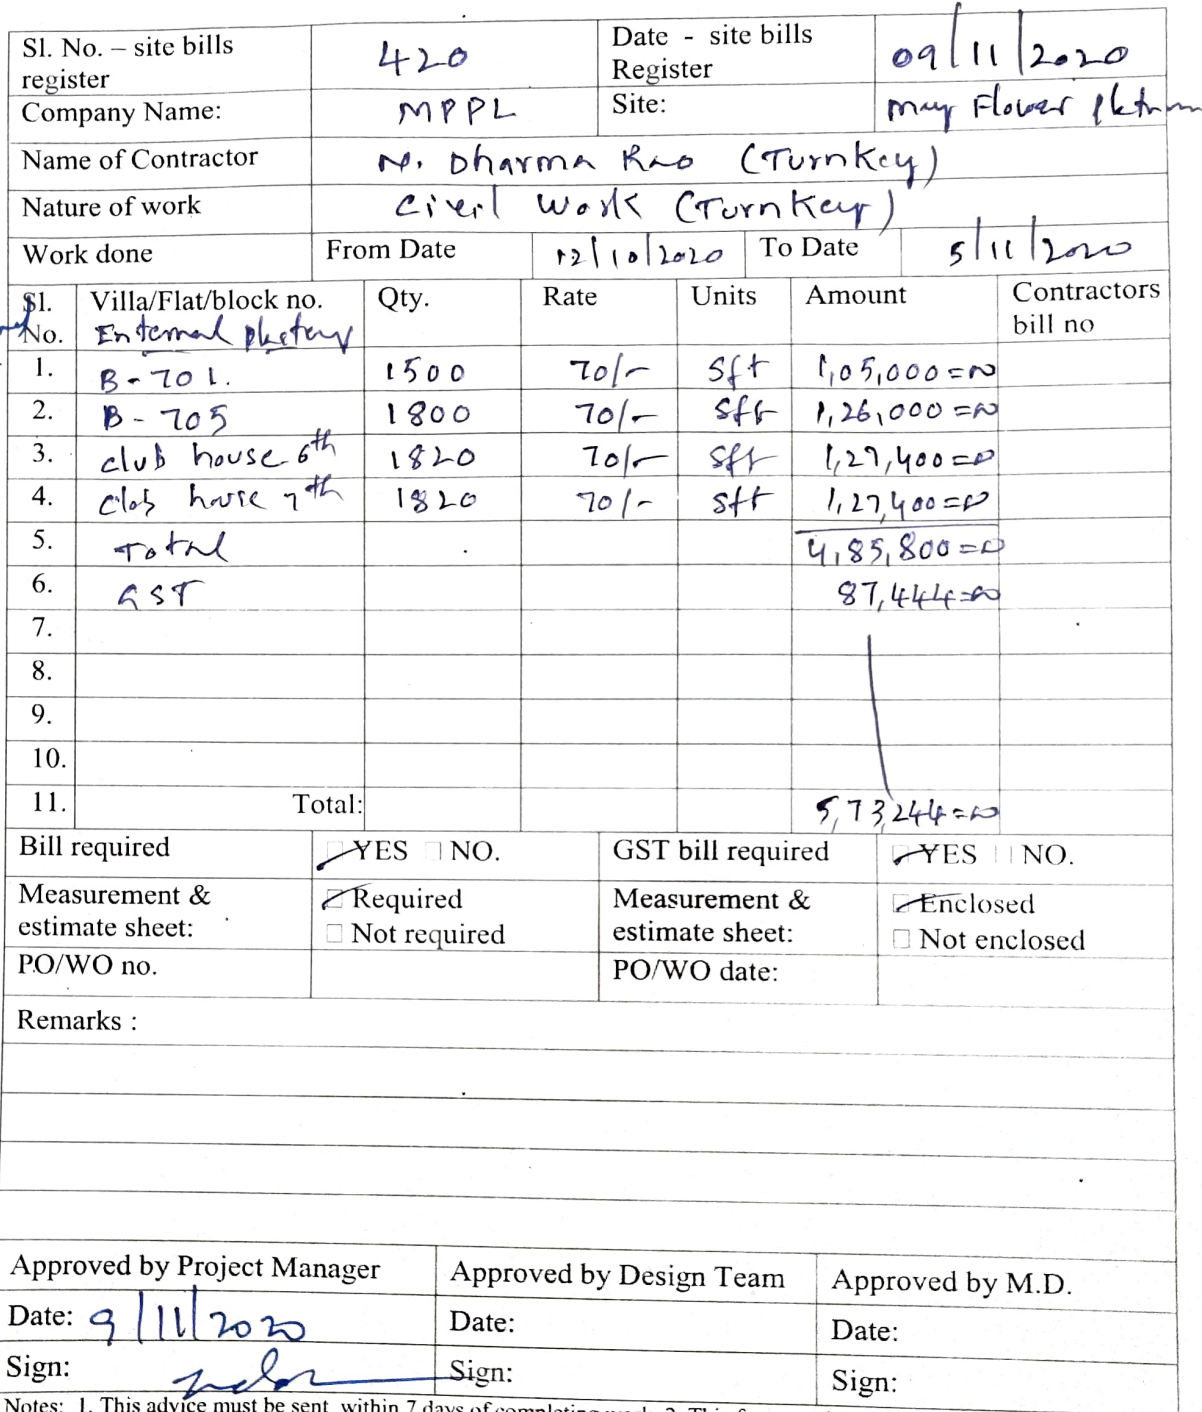 Sl. No. – site bills register 420 Date - site bills Register 09/11/2020
Company Name: MPPL Site: may Flower
Name of Contractor N. Dharma Rao (Turnkey)
Nature of work Civil Work (Turnkey)
Work done From Date 12/10/2020 To Date 5/11/2020
Sl. No. Villa/Flat/block no. Qty. Rate Units Amount Contractors bill no
1. B-701. 1500 70/- Sft 1,05,000=00
2. B-705 1800 70/- Sft 1,26,000=00
3. club house 6th 1820 70/- Sft 1,27,400=00
4. Club house 7th 1820 70/- Sft 1,27,400=00
5. Total 4,85,800=00
6. GST 87,444=00
7.
8.
9.
10.
11. Total: 5,73,244=00
Bill required YES NO. GST bill required YES NO.
Measurement & estimate sheet: Required Measurement & estimate sheet: Enclosed
Not required Not enclosed
P.O/WO no. PO/WO date:
Remarks :
Approved by Project Manager Approved by Design Team Approved by M.D.
Date: 9/11/2020 Date: Date:
Sign: Sign: Sign:
Notes: 1. This advice must be sent within 7 days of completing